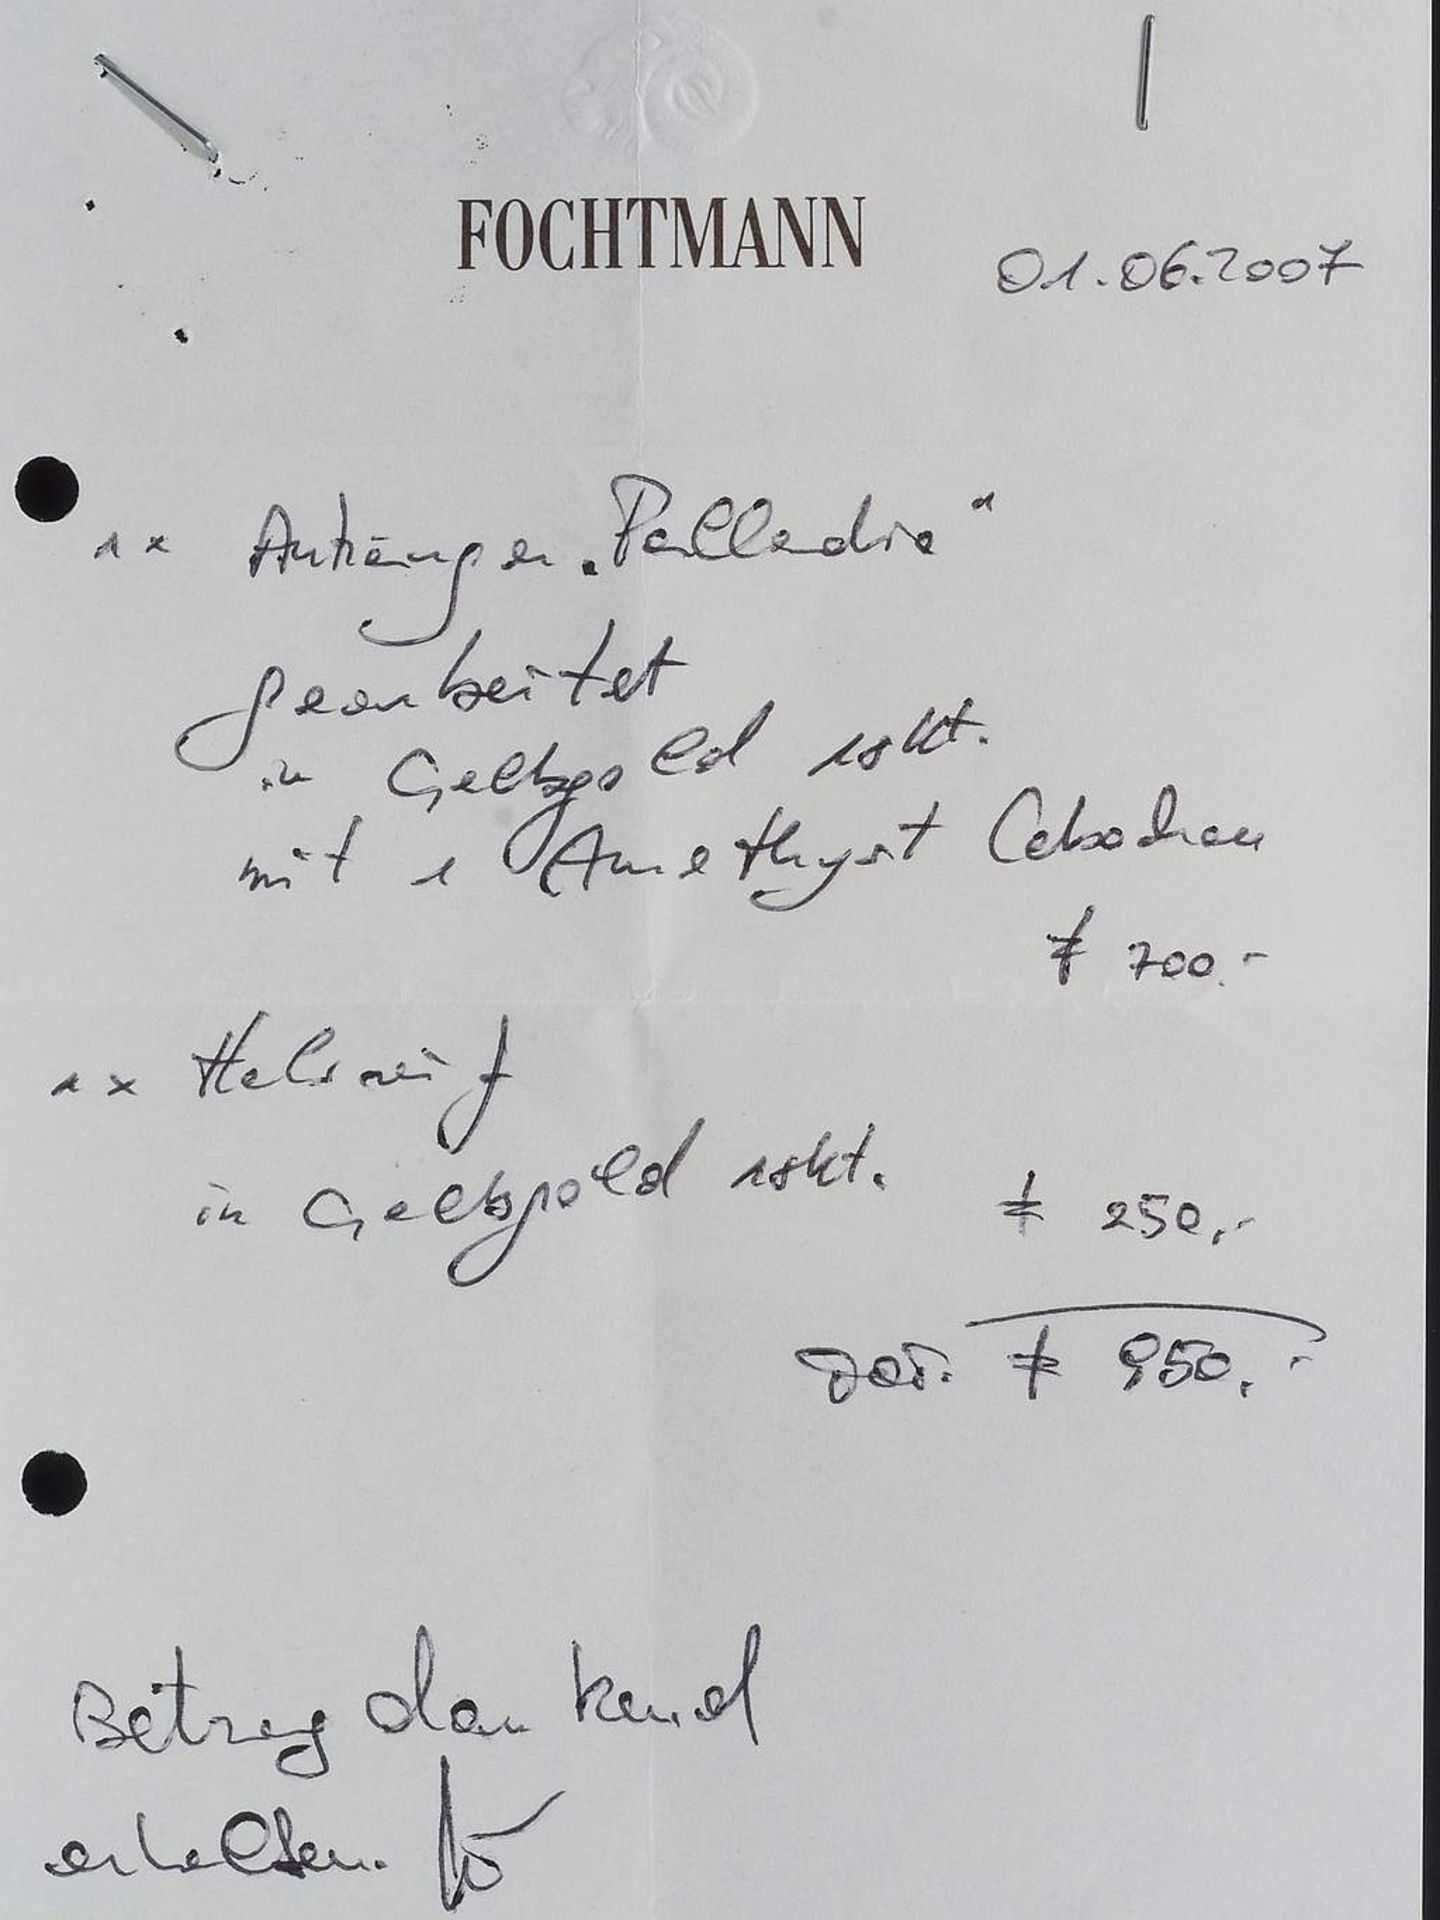 FOCHTMANN
01.06.2007
1x Anhänger „Palladio“
gearbeitet
in Gelbgold 18kt.
mit 1 Amethyst Cabochon
€ 700.-
1x Halsreif
in Gelbgold 18kt.
€ 250,-
€ 950,-
Betrag dankend
erhalten.